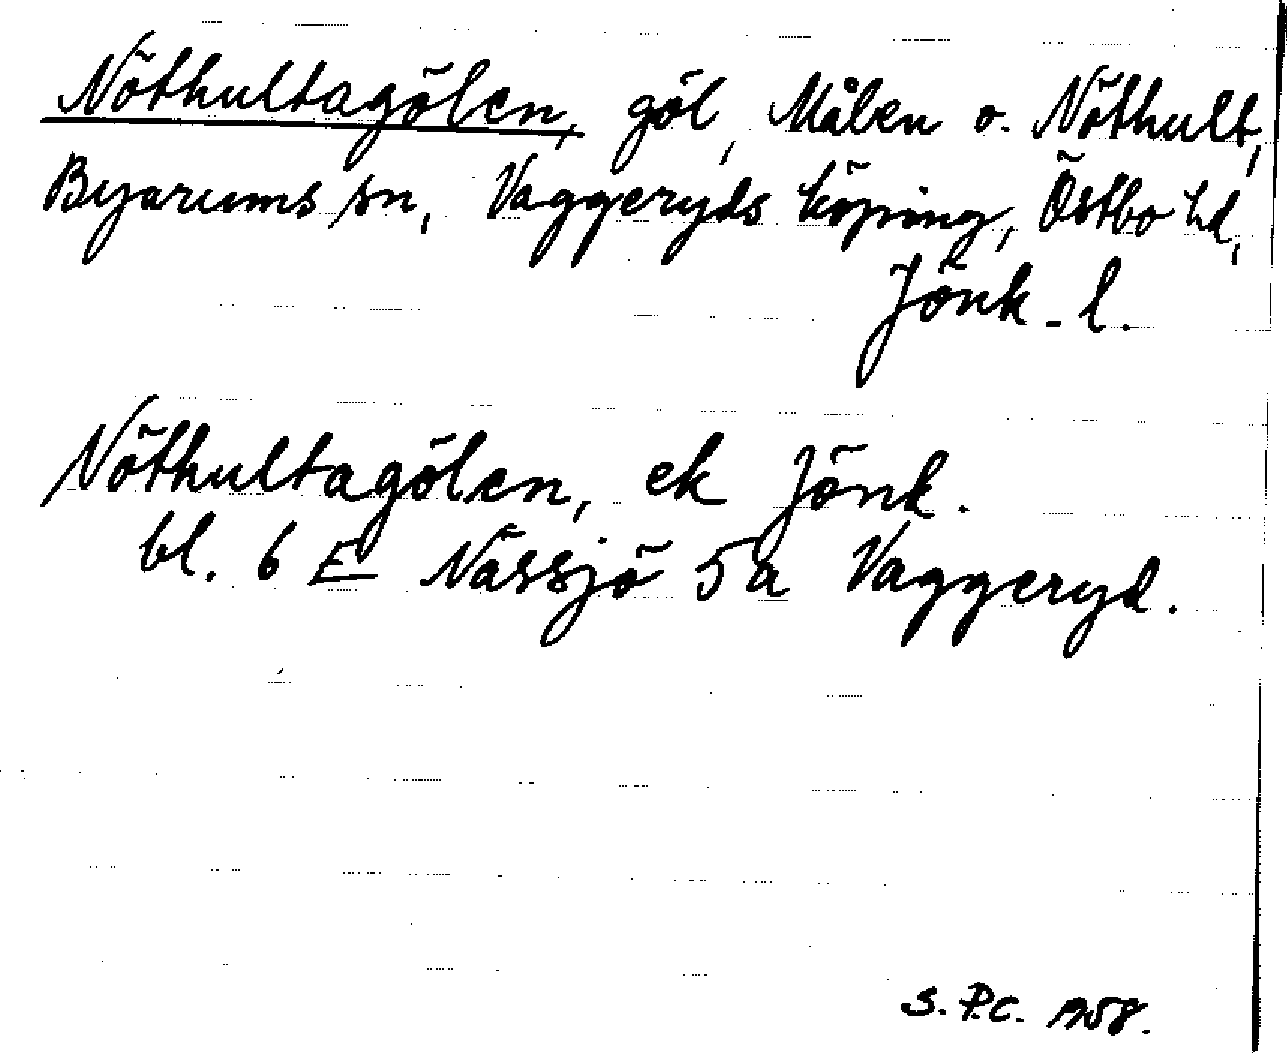 Nöthultagölen, göl, Målen o. Nöthult,
Byarums sn, Vaggeryds köping, Östbo hd,
Jönk. l.
Nöthultagölen, ek Jönk.
bl. 6 E Nässjö 5a Vaggeryd.
S. P.C. 1958.